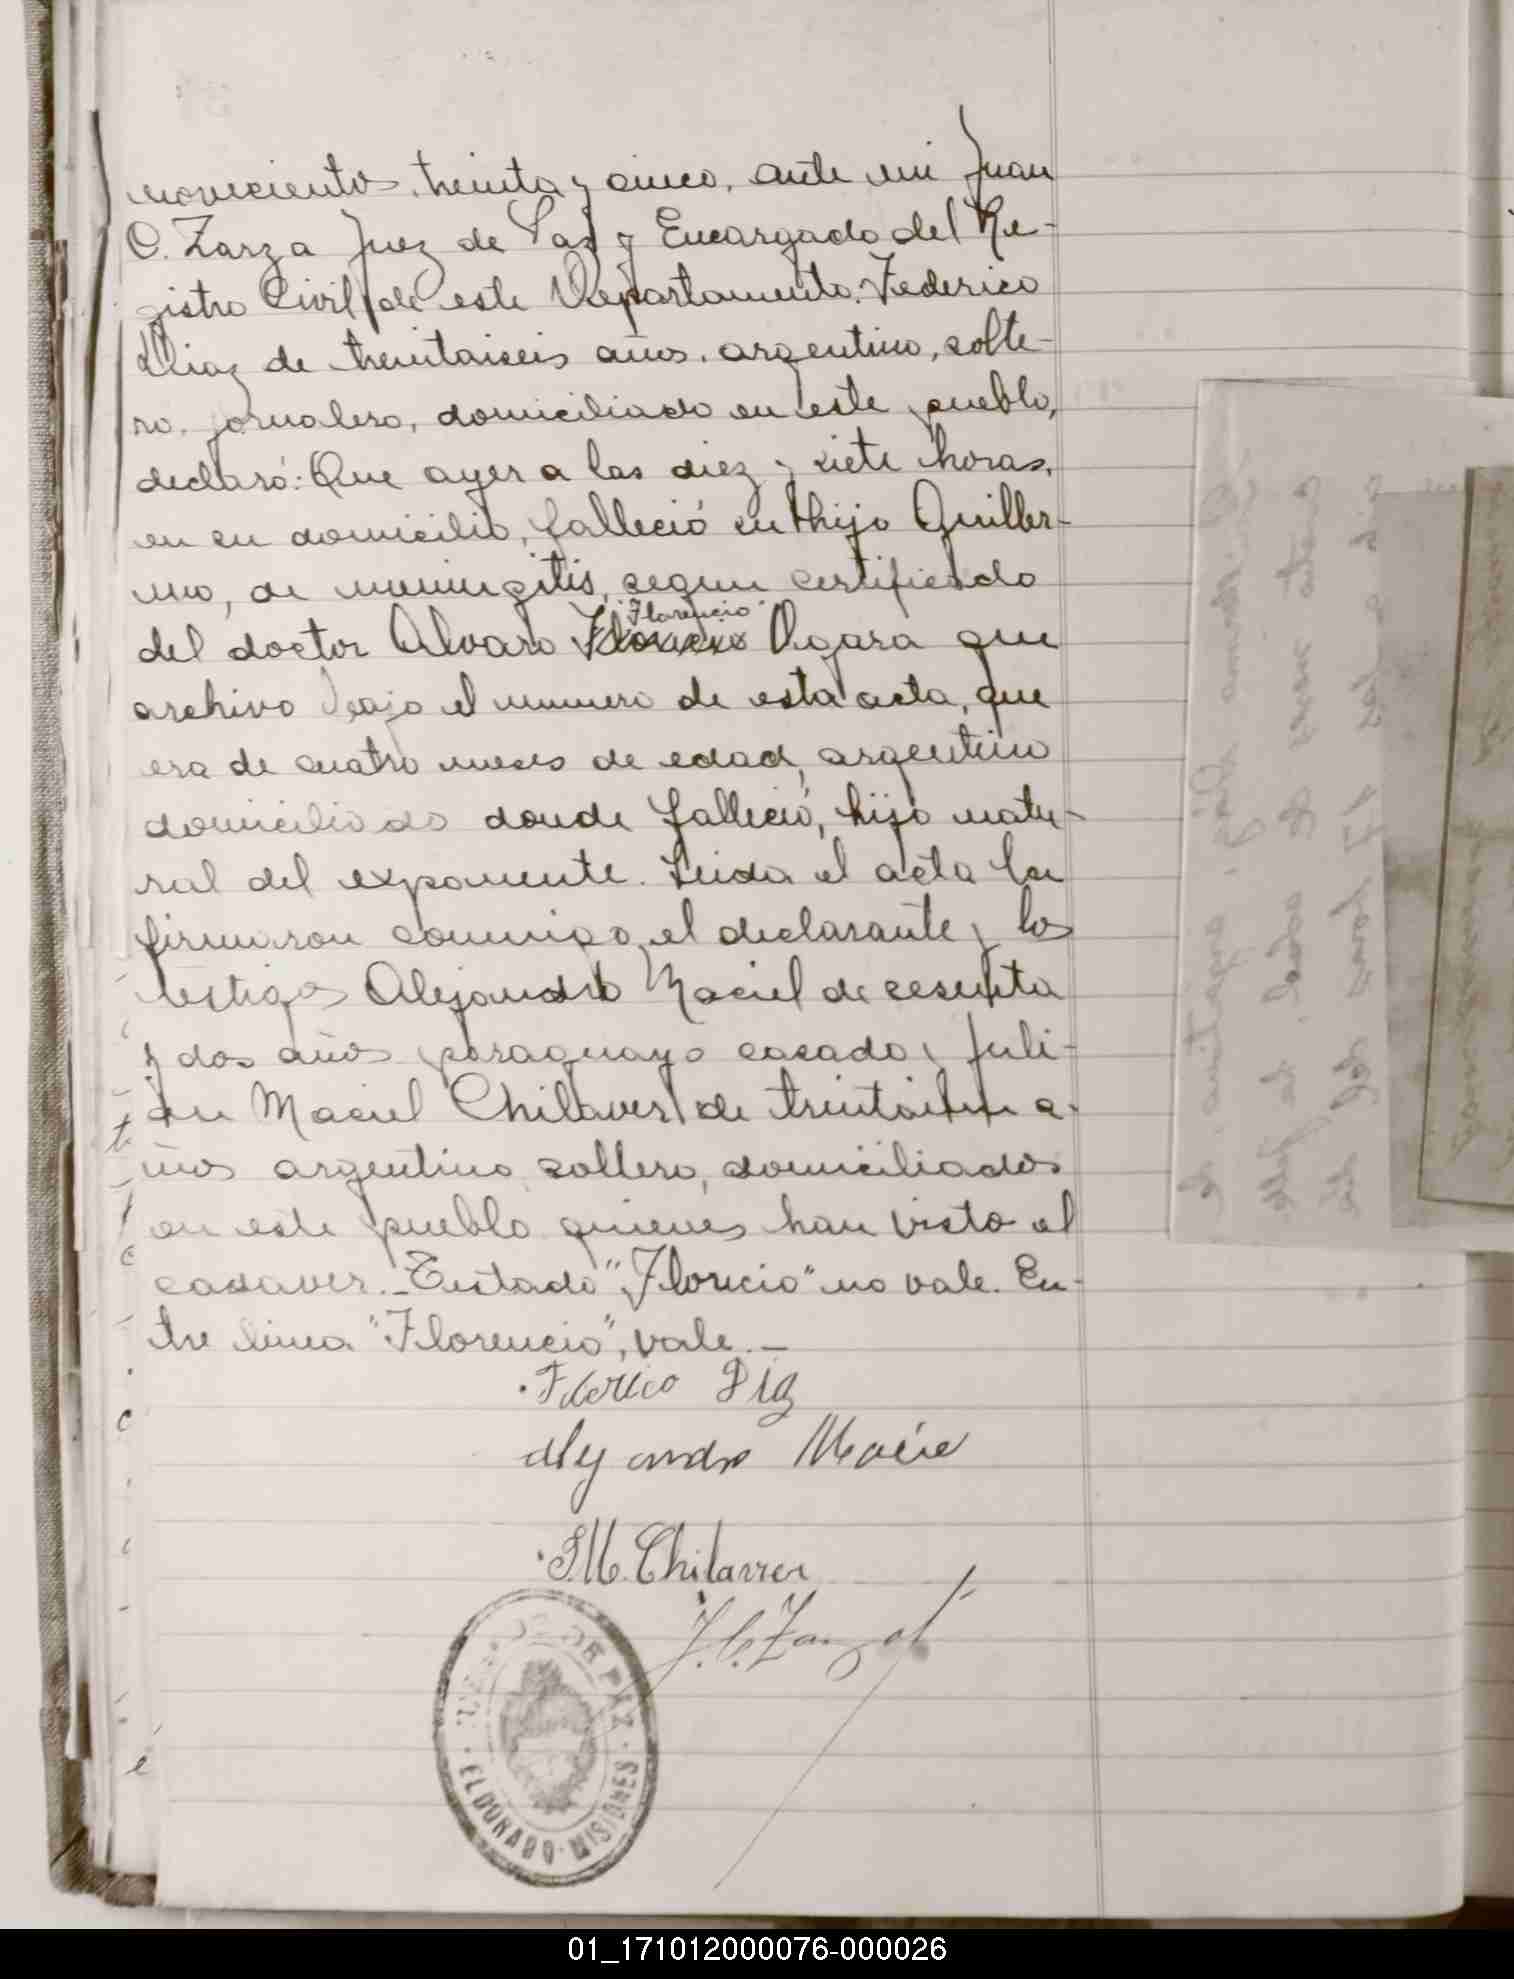 novecientos treinta y cinco, ante mi Juan
C. Zarza Juez de Paz y Encargado del Re-
gistro Civil de este Departamento. Federico
Diaz de treintaiseis años, argentino, solte-
ro, jornalero, domiciliado en este pueblo,
declaró: Que ayer a las diez y siete horas,
en su domicilio, falleció su hijo Guiller-
mo, de meningitis, segun certificado
Florencio
del doctor Alvaro Floricio Ogara que
archivo bajo el numero de esta acta, que
era de cuatro meses de edad, argentino
domiciliado donde falleció, hijo natu-
ral del exponente. Leida el acta la
firmaron conmigo, el declarante y los
testigos Alejandro Maciel de sesenta
y dos años paraguayo casado y Juli-
an Maciel Chilaver de treintaiun a-
ños argentino soltero, domiciliados
en este pueblo quienes han visto el
cadaver._Testado "Floricio" no vale. En-
tre linea "Florencio", vale._
Federico Diaz
Alejandro Maciel
J.M. Chilaver
J.C. Zarza
JUZGADO DE PAZ
ELDORADO - MISIONES
01_171012000076-000026